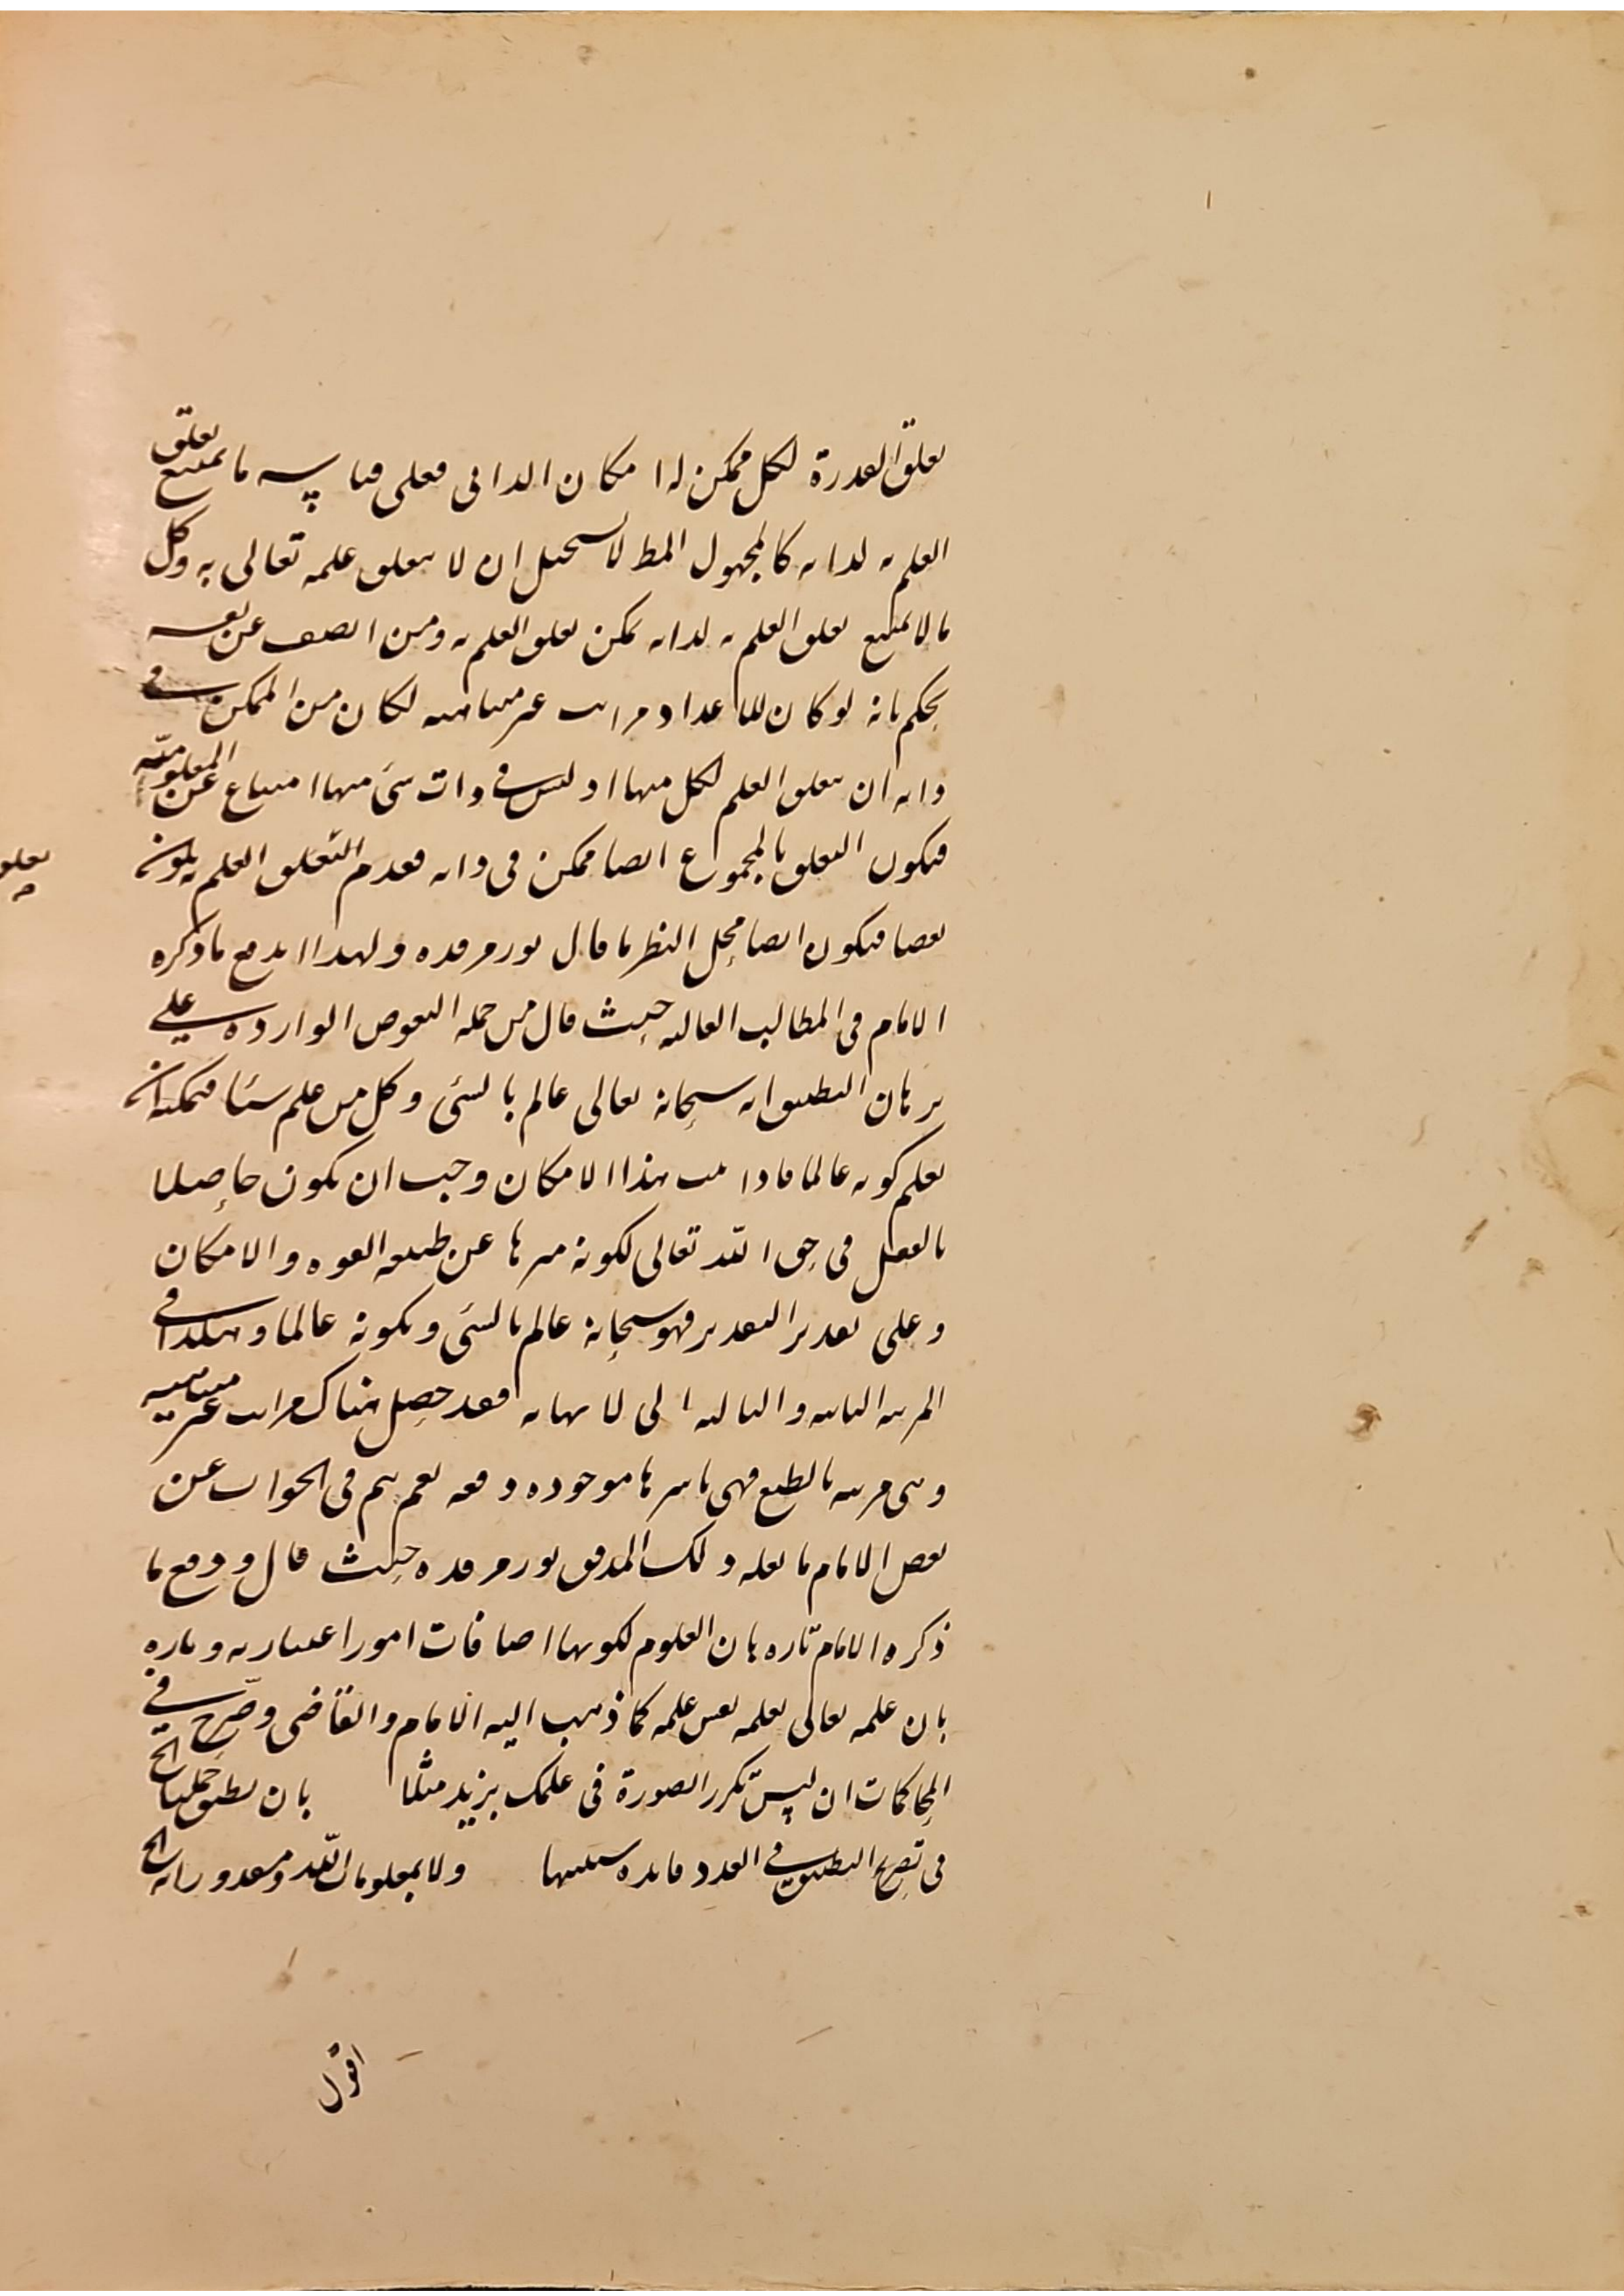 تعلق القدرة لكل ممكن له امكان الذاتى فعلى قياسه ما يمتنع تعلق
العلم به لذاته كالمجهول المط لا يستحيل ان لا يتعلق علمه تعالى به وكل
ما لا يمتنع تعلق العلم به لذاته يمكن تعلق العلم به ومن انصف عن نفسه
يحكم بانه لو كان للاعداد مراتب غير متناهيه لكان من الممكن فى
ذاته ان يتعلق العلم لكل منها اذ ليس فى ذات شئ منها امتناع عن المعلوميّه
فيكون التعلق بالمجموع ايضا ممكن فى ذاته فعدم التعلق العلم به يكون
نقصا فيكون ايضا محل النظر ما قال نور مرقده ولهذا اندفع ما ذكره
الامام فى المطالب العاليه حيث قال من جمله النقوض الوارده على
برهان التطبيق انه سبحانه تعالى عالم بالشئ وكل من علم شيئا فيمكنه ان
يعلم كونه عالما فاذا هذا الامكان وجب ان يكون حاصلا
بالفعل فى حق الله تعالى لكونه منزها عن طبيعه القوه والامكان
وعلى تقدير التقدير فهو سبحانه عالم بالشئ وبكونه عالما وهكذا فى
المرتبه الثانيه والثالثه الى لا نهايه فقد حصل هناك مراتب غير متناهيه
وهى مرتبه بالطبع فهى باسرها موجوده دفعه نعم يتم فى الجواب عن
نقض الامام ما نقله ذلك المدقق نور مرقده حيث قال ودفع ما
ذكره الامام تاره بان العلوم لكونها اضافات امورا اعتباريه وتاره
بان علمه تعالى بعلمه نفس علمه كما ذهب اليه الامام والقاضى وصرّح فى
المحاكمات ان ليس تكرر الصورة فى علمك بزيد مثلا بان تطبق جملتا الخ
فى تصح التطبيق فى العدد فائده ستسمعها ولا بمعلومات الله ومقدوراته الخ
اقول